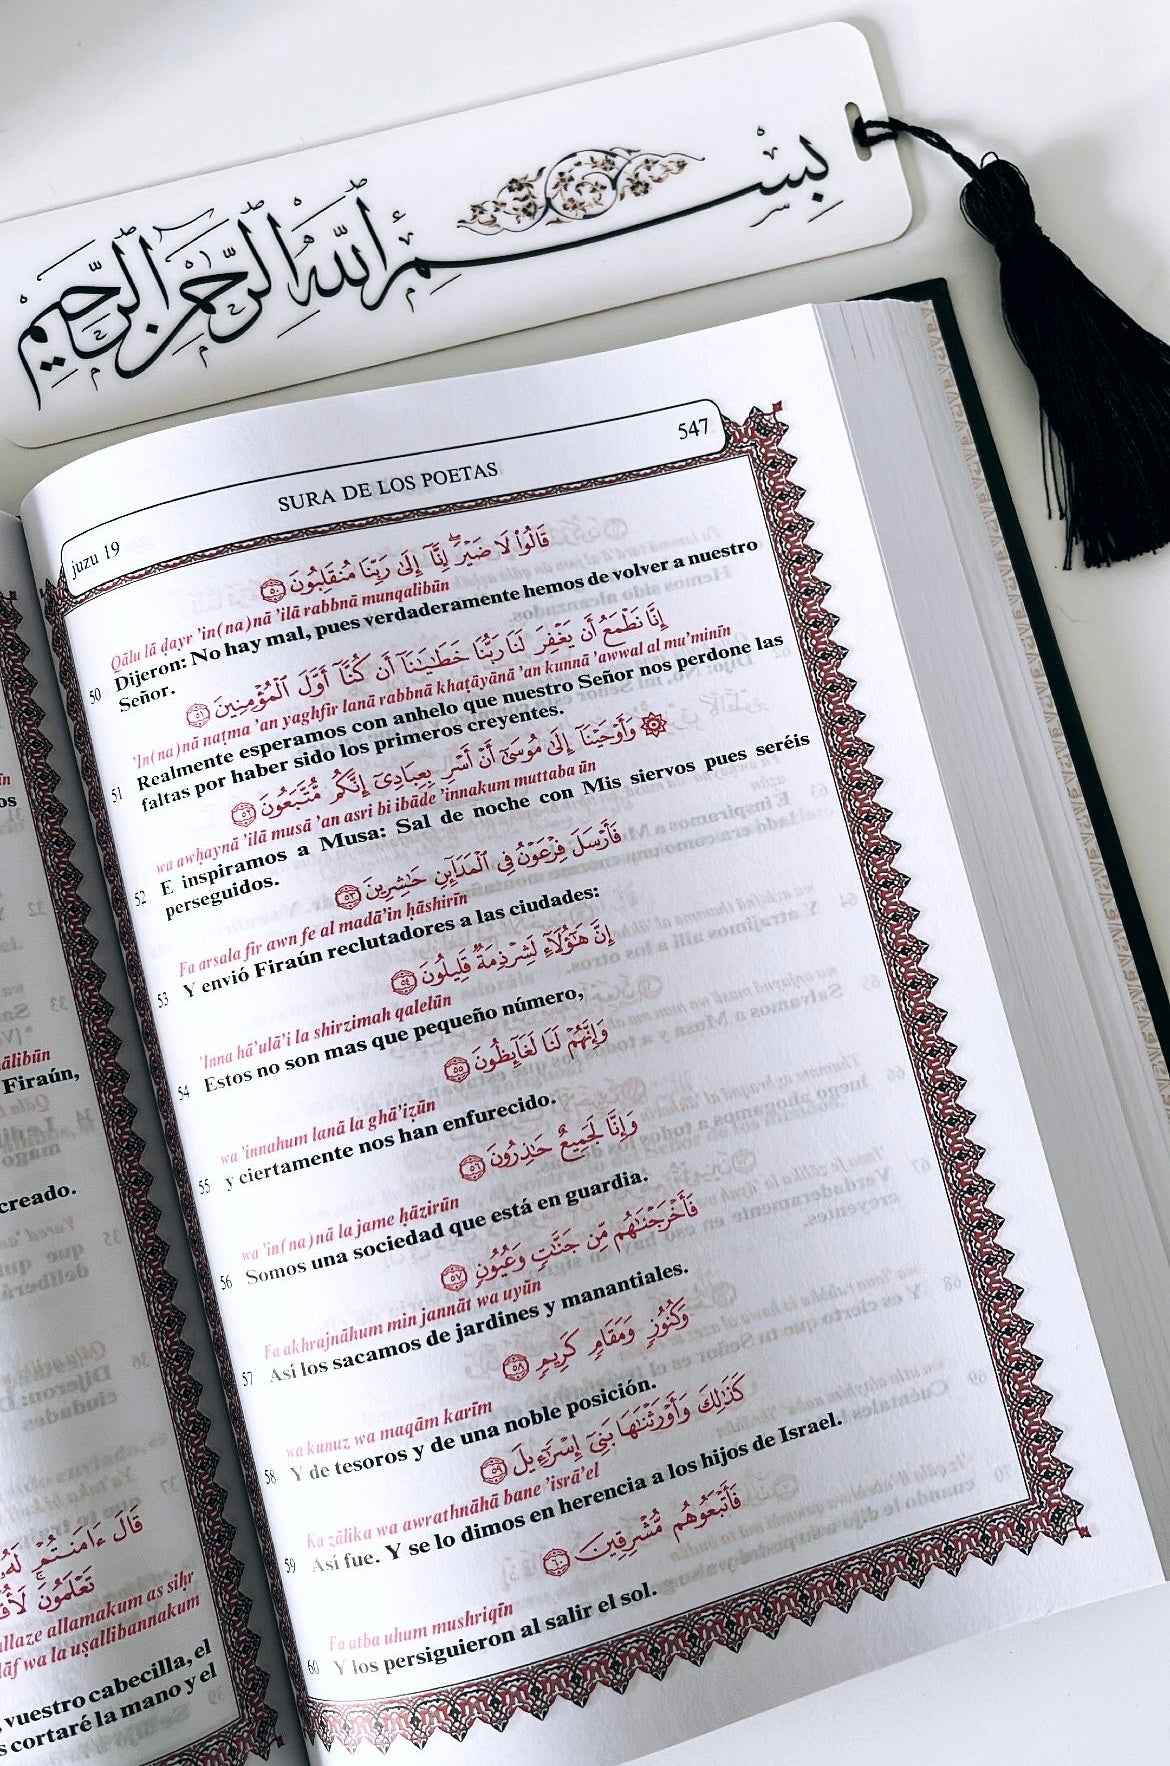 بِسْمِ ٱللَّهِ ٱلرَّحْمَٰنِ ٱلرَّحِيمِ
547
SURA DE LOS POETAS
juzu 19
قَالُوا۟ لَا ضَيْرَ ۖ إِنَّآ إِلَىٰ رَبِّنَا مُنقَلِبُونَ ۝٥٠
Qālu lā ḍayr 'in(na)nā 'ilā rabbnā munqalibūn
50 Dijeron: No hay mal, pues verdaderamente hemos de volver a nuestro
Señor.
إِنَّا نَطْمَعُ أَن يَغْفِرَ لَنَا رَبُّنَا خَطَٰيَٰنَآ أَن كُنَّآ أَوَّلَ ٱلْمُؤْمِنِينَ ۝٥١
'In(na)nā naṭma 'an yaghfir lanā rabbnā khaṭāyānā 'an kunnā 'awwal al mu'minīn
51 Realmente esperamos con anhelo que nuestro Señor nos perdone las
faltas por haber sido los primeros creyentes.
۞ وَأَوْحَيْنَآ إِلَىٰ مُوسَىٰٓ أَنْ أَسْرِ بِعِبَادِىٓ إِنَّكُم مُّتَّبَعُونَ ۝٥٢
wa awḥaynā 'ilā musā 'an asri bi ibāde 'innakum muttaba ūn
52 E inspiramos a Musa: Sal de noche con Mis siervos pues seréis
perseguidos.
فَأَرْسَلَ فِرْعَوْنُ فِى ٱلْمَدَآئِنِ حَٰشِرِينَ ۝٥٣
Fa arsala fir awn fe al madā'in ḥāshirīn
53 Y envió Firaún reclutadores a las ciudades:
إِنَّ هَٰٓؤُلَآءِ لَشِرْذِمَةٌ قَلِيلُونَ ۝٥٤
'Inna hā'ulā'i la shirzimah qalelūn
54 Estos no son mas que pequeño número,
وَإِنَّهُمْ لَنَا لَغَآئِظُونَ ۝٥٥
wa 'innahum lanā la ghā'iẓūn
55 y ciertamente nos han enfurecido.
وَإِنَّا لَجَمِيعٌ حَٰذِرُونَ ۝٥٦
wa 'in(na)nā la jame ḥāzirūn
56 Somos una sociedad que está en guardia.
فَأَخْرَجْنَٰهُم مِّن جَنَّٰتٍ وَعُيُونٍ ۝٥٧
Fa akhrajnāhum min jannāt wa uyūn
57 Así los sacamos de jardines y manantiales.
وَكُنُوزٍ وَمَقَامٍ كَرِيمٍ ۝٥٨
wa kunuz wa maqām karīm
58 Y de tesoros y de una noble posición.
كَذَٰلِكَ وَأَوْرَثْنَٰهَا بَنِىٓ إِسْرَٰٓءِيلَ ۝٥٩
Ka zālika wa awrathnāhā bane 'isrā'el
59 Así fue. Y se lo dimos en herencia a los hijos de Israel.
فَأَتْبَعُوهُم مُّشْرِقِينَ ۝٦٠
Fa atba uhum mushriqīn
60 Y los persiguieron al salir el sol.
Firaún,
creado.
قَالَ ءَامَنتُمْ لَهُۥ
allamakum as siḥr
wa la uṣallibannakum
vuestro cabecilla, el
cortaré la mano y el